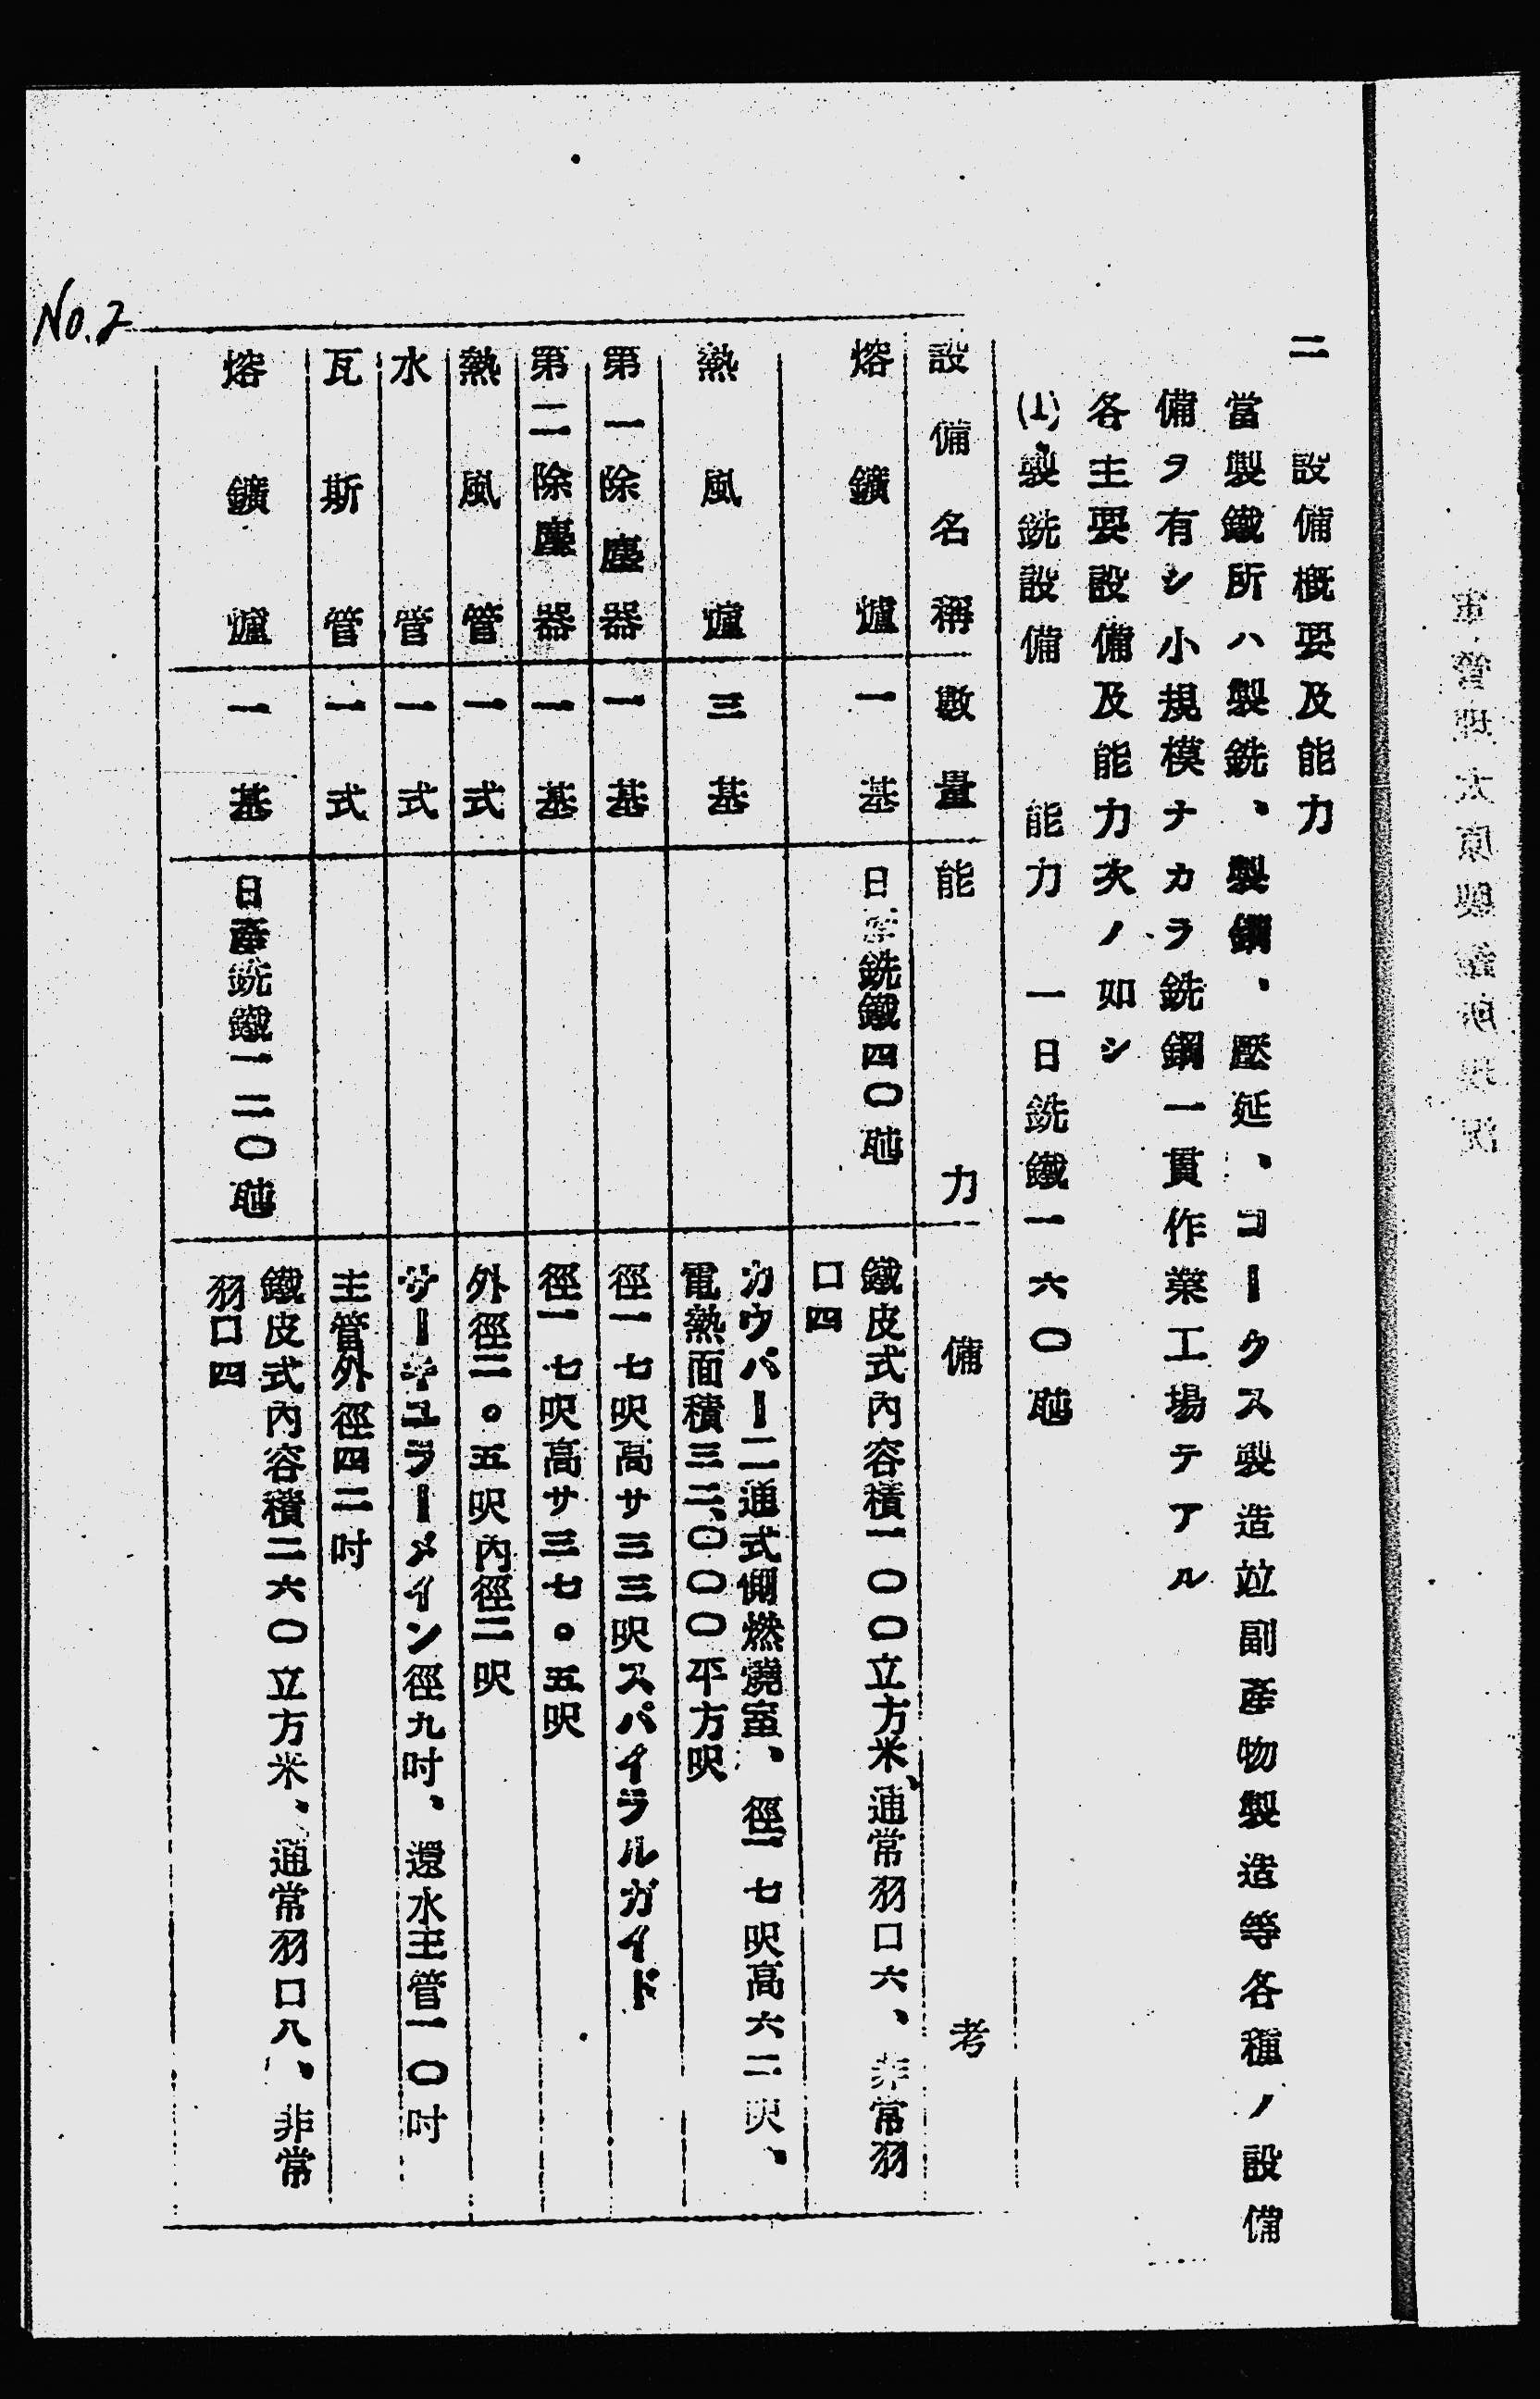 二　設備概要及能力
當製鐵所ハ製銑、製鋼、壓延、コークス製造竝副產物製造等各種ノ設備
備ヲ有シ小規模ナカラ銑鋼一貫作業工場テアル
各主要設備及能力次ノ如シ
(1)、製銑設備　能力　一日銑鐵一六〇瓲
設備名稱　數量　能力　備考
熔鑛爐　一基　日產銑鐵四〇瓲　鐵皮式內容積一〇〇立方米、通常羽口六、非常羽
口四
熱風爐　三基　カウパー二通式側燃燒室、徑一七呎高六二呎、
電熱面積三二、〇〇〇平方呎
第一除塵器　一基　徑一七呎高サ三三呎スパイラルガイド
第二除塵器　一基　徑一七呎高サ三七。五呎
熱風管　一式　外徑三。五呎內徑二呎
水管　一式　サーキユラーメイン徑九吋、還水主管一〇吋
瓦斯管　一式　主管外徑四二吋
熔鑛爐　一基　日產銑鐵一二〇瓲　鐵皮式內容積二六〇立方米、通常羽口八、非常
羽口四
No.2